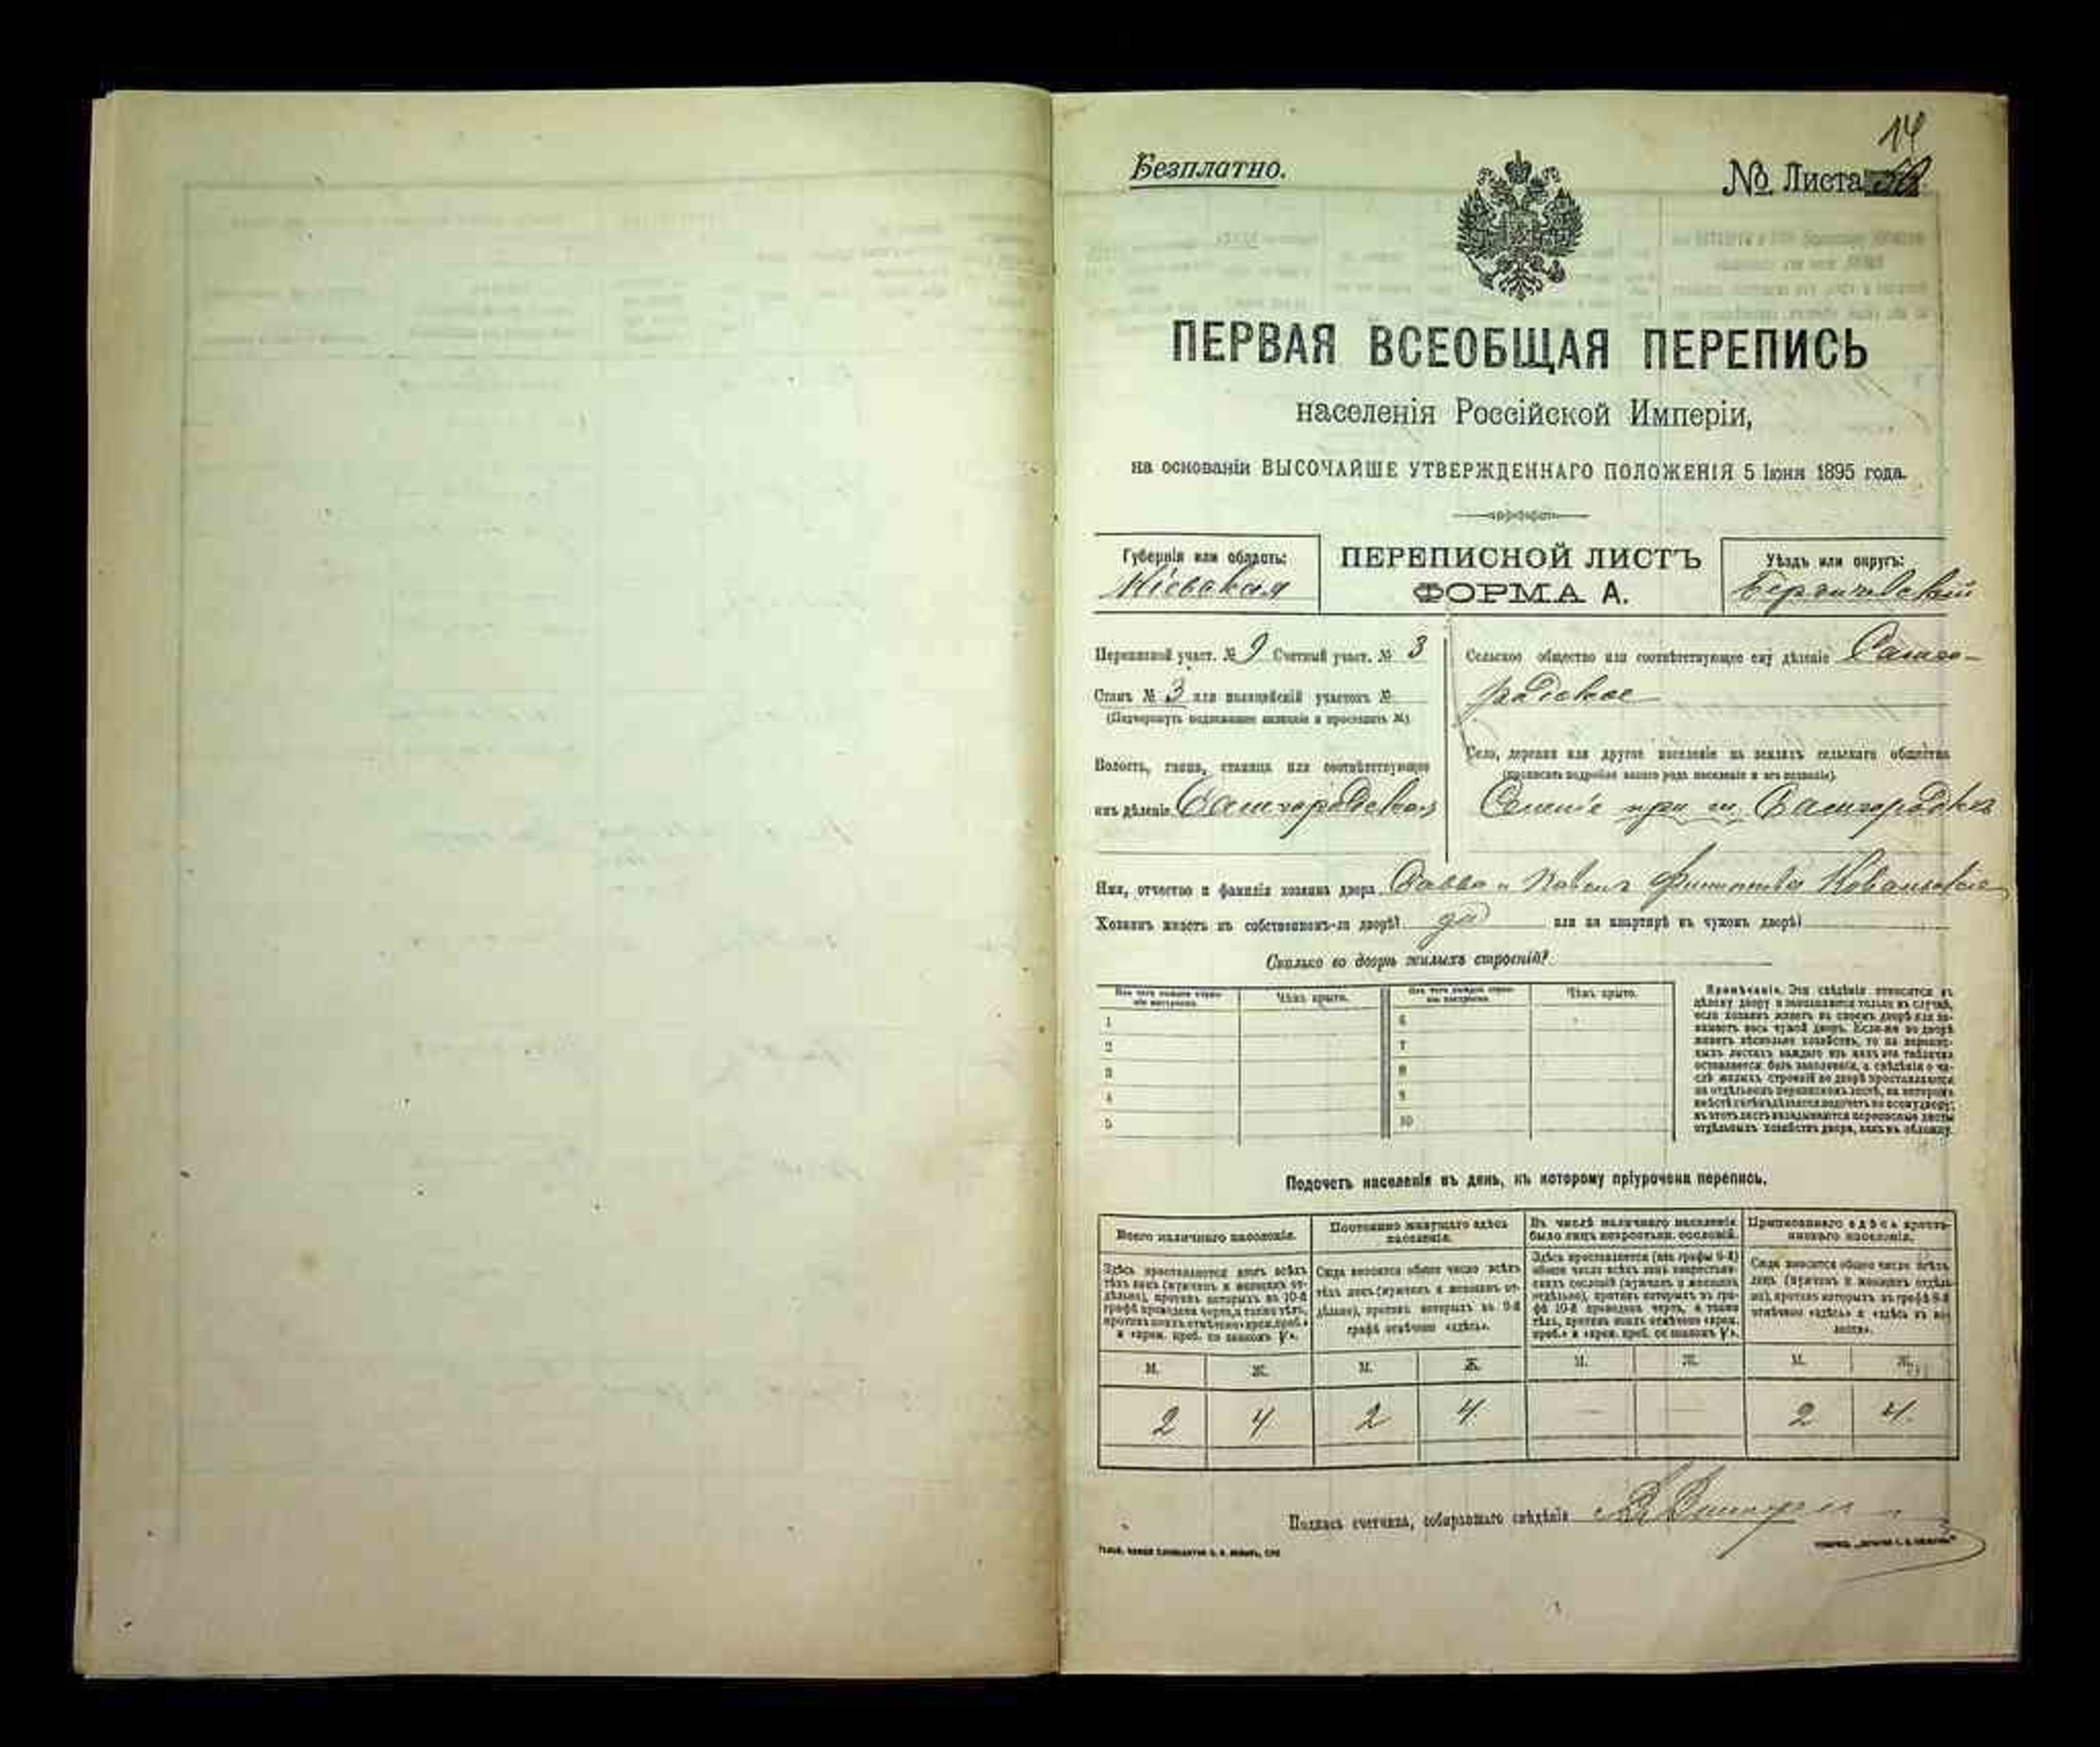 14
Безплатно.
№ Листа
ПЕРВАЯ ВСЕОБЩАЯ ПЕРЕПИСЬ
населенія Россійской Имперіи,
на основаніи ВЫСОЧАЙШЕ УТВЕРЖДЕННАГО ПОЛОЖЕНІЯ 5 Іюня 1895 года.
Губернія или область:
Кіевская
ПЕРЕПИСНОЙ ЛИСТЪ
ФОРМА А.
Уѣздъ или округъ:
Бердичевскій
Переписной участ. № 9 Счетный участ. № 3
Станъ № 3 или полицейскій участокъ №
(Подчеркнуть подлежащее названіе и проставить №)
Волость, гмина, станица или соотвѣтствующее
имъ дѣленіе Самгородская
Сельское общество или соотвѣтствующее ему дѣленіе Самго-
родское
Село, деревня или другое поселеніе на земляхъ сельскаго общества
(прописать подробно какого рода поселеніе и его названіе).
Селеніе при м. Самгородкѣ
Имя, отчество и фамилія хозяина двора Савва и Павелъ
Хозяинъ живетъ въ собственномъ-ли дворѣ? да или на квартирѣ въ чужомъ дворѣ?
Сколько во дворѣ жилыхъ строеній?
Изъ чего каждое строе-
ніе выстроено.
Чѣмъ крыто.
Изъ чего каждое строе-
ніе выстроено.
Чѣмъ крыто.
1
2
3
4
5
6
7
8
9
10
Примѣчаніе. Эти свѣдѣнія относятся къ
цѣлому двору и заполняются только въ случаѣ,
если хозяинъ живетъ въ своемъ дворѣ или за-
нимаетъ весь чужой дворъ. Если-же во дворѣ
живетъ нѣсколько хозяйствъ, то на перепис-
ныхъ листахъ каждаго изъ нихъ эта табличка
оставляется безъ заполненія, а свѣдѣнія о чи-
слѣ жилыхъ строеній во дворѣ проставляются
на отдѣльномъ переписномъ листѣ, на которомъ
вмѣстѣ съ тѣмъ дѣлается подсчетъ по всему двору;
въ этотъ листъ вкладываются переписные листы
отдѣльныхъ хозяйствъ двора, какъ въ обложку.
Подсчетъ населенія въ день, къ которому пріурочена перепись.
Всего наличнаго населенія.
Здѣсь проставляются итогъ всѣхъ
тѣхъ лицъ (мужчинъ и женщинъ от-
дѣльно), противъ которыхъ въ 10-й
графѣ проведена черта, а также тѣхъ,
противъ коихъ отмѣчено «врем. преб.»
и «врем. преб. со знакомъ V».
Постоянно живущаго здѣсь
населенія.
Сюда вносится общее число всѣхъ
тѣхъ лицъ (мужчинъ и женщинъ от-
дѣльно), противъ которыхъ въ 9-й
графѣ отмѣчено «здѣсь».
Въ числѣ наличнаго населенія
было лицъ некрестьян. сословій.
Здѣсь проставляется (изъ графы 6-й)
общее число всѣхъ лицъ некрестьян-
скихъ сословій (мужчинъ и женщинъ
отдѣльно), противъ которыхъ въ гра-
фѣ 10-й проведена черта, а также
тѣхъ, противъ коихъ отмѣчено «врем.
преб.» и «врем. преб. со знакомъ V».
Приписаннаго здѣсь кресть-
янскаго населенія.
Сюда вносится общее число всѣхъ
лицъ (мужчинъ и женщинъ отдѣль-
но), противъ которыхъ въ графѣ 8-й
отмѣчено «здѣсь» и «здѣсь въ во-
лости».
М. Ж. М. Ж. М. Ж. М. Ж.
2 4 2 4 — — 2 4
Подпись счетчика, собиравшаго свѣдѣнія